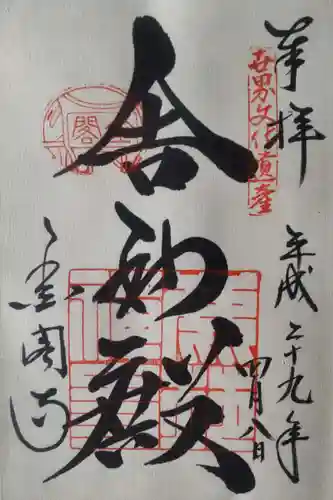 奉拝
世界文化遺産
平成二十九年
四月八日
舎利殿
閣
金閣寺